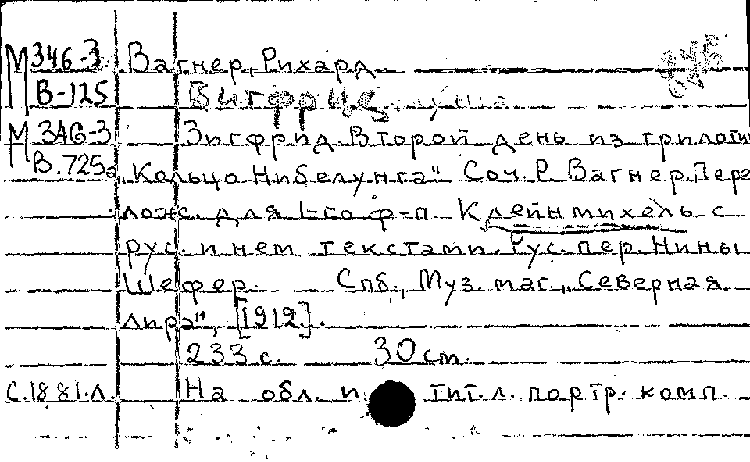 М 346-3 Вагнер, Рихард
В-125
М 346-3 Зигфрид. Второй день из трилогии
В.725а „Кольцо Нибелунга". Соч. Р. Вагнер. Пере
лож. для 1-го ф-п. Клейнмихель с
рус. и нем текстами. Рус. пер. Нины
Шефер. Спб., Муз. маг. „Северная
лира", [1912].
233 с. 30 cm.
С.1881.л. На обл. и тит. л. портр. комп.